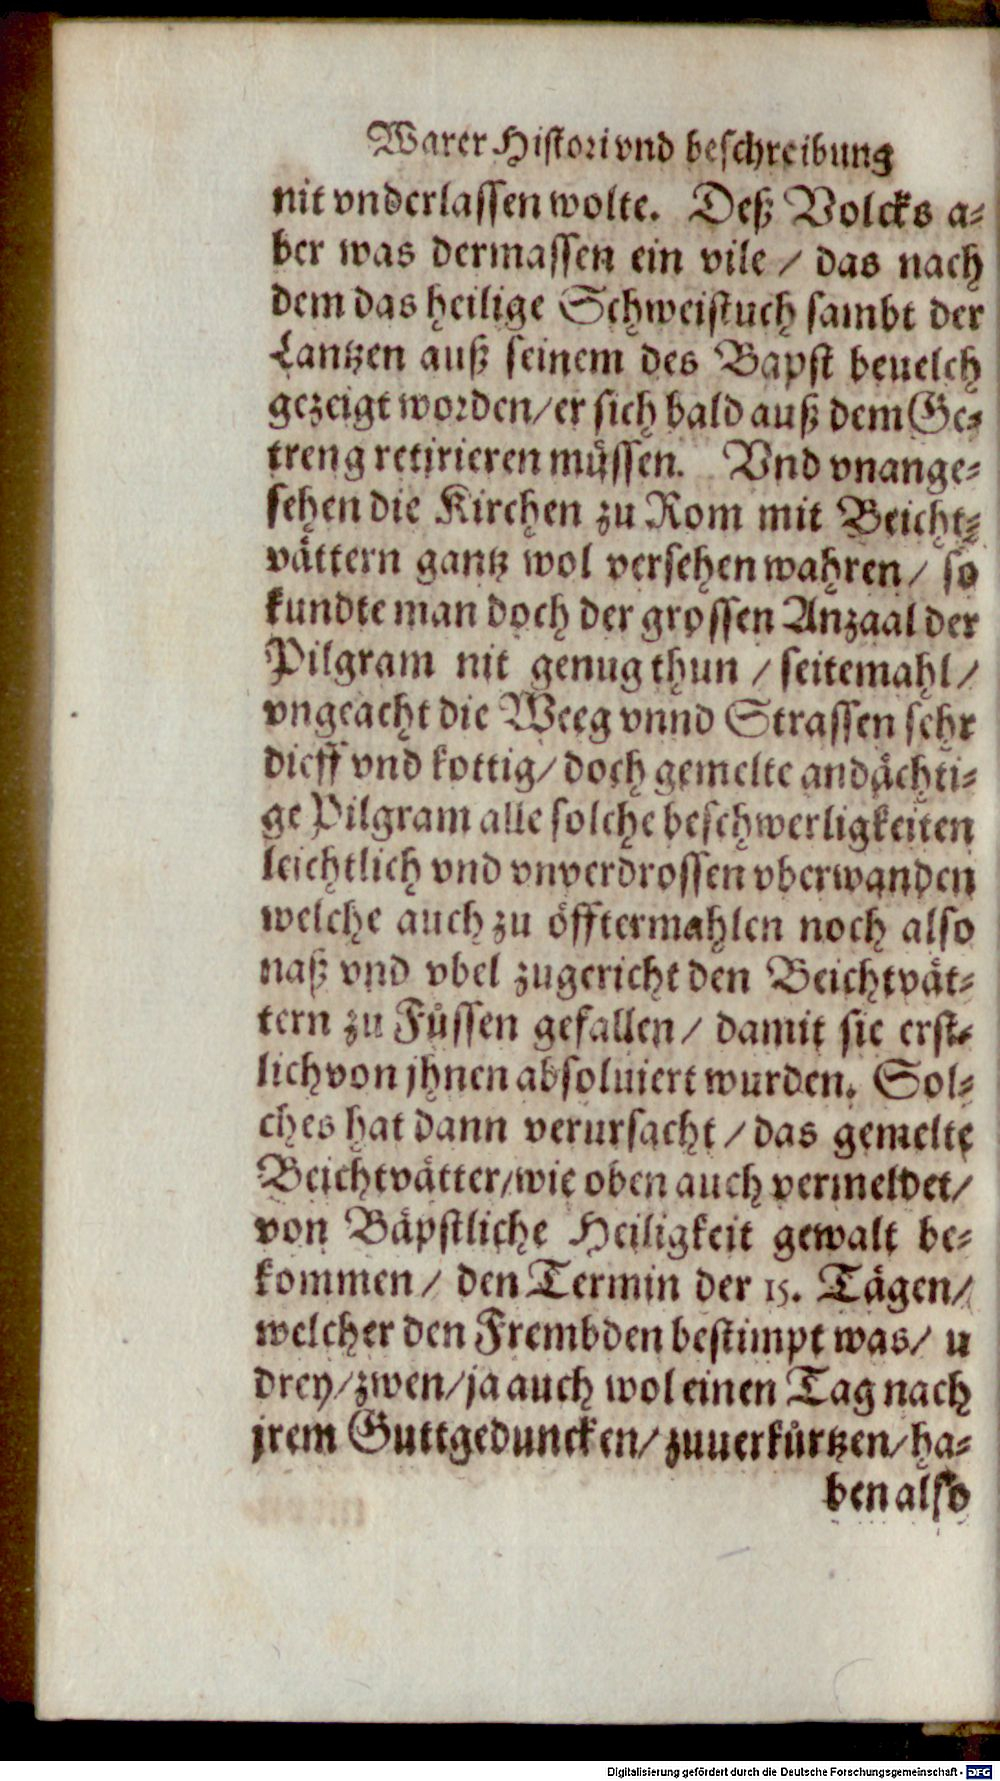 Warer Histori vnd beschreibung
nit vnderlassen wolte. Deß Volcks a-
ber was dermassen ein vile / das nach
dem das heilige Schweistuch sambt der
Lantzen auß seinem des Bapst beuelch
gezeigt worden/er sich bald auß dem Ge-
treng retirieren müssen. Vnd vnange-
sehen die Kirchen zu Rom mit Beicht-
vättern gantz wol versehen wahren/ so
kundte man doch der grossen Anzaal der
Pilgram nit genug thun / seitemahl/
vngeacht die Weeg vnnd Strassen sehr
dieff vnd kottig/ doch gemelte andächti-
ge Pilgram alle solche beschwerligkeiten
leichtlich vnd vnverdrossen vberwanden
welche auch zu öfftermahlen noch also
naß vnd vbel zugericht den Beichtvät-
tern zu Füssen gefallen/ damit sie erst-
lich von jhnen absoluiert wurden. Sol-
ches hat dann verursacht / das gemelte
Beichtvätter/wie oben auch vermeldet/
von Bäpstliche Heiligkeit gewalt be-
kommen/ den Termin der 15. Tägen/
welcher den Frembden bestimpt was/ u
drey/zwen/ja auch wol einen Tag nach
jrem Guttgeduncken/zuuerkürtzen/ha-
ben also
Digitalisierung gefördert durch die Deutsche Forschungsgemeinschaft - DFG